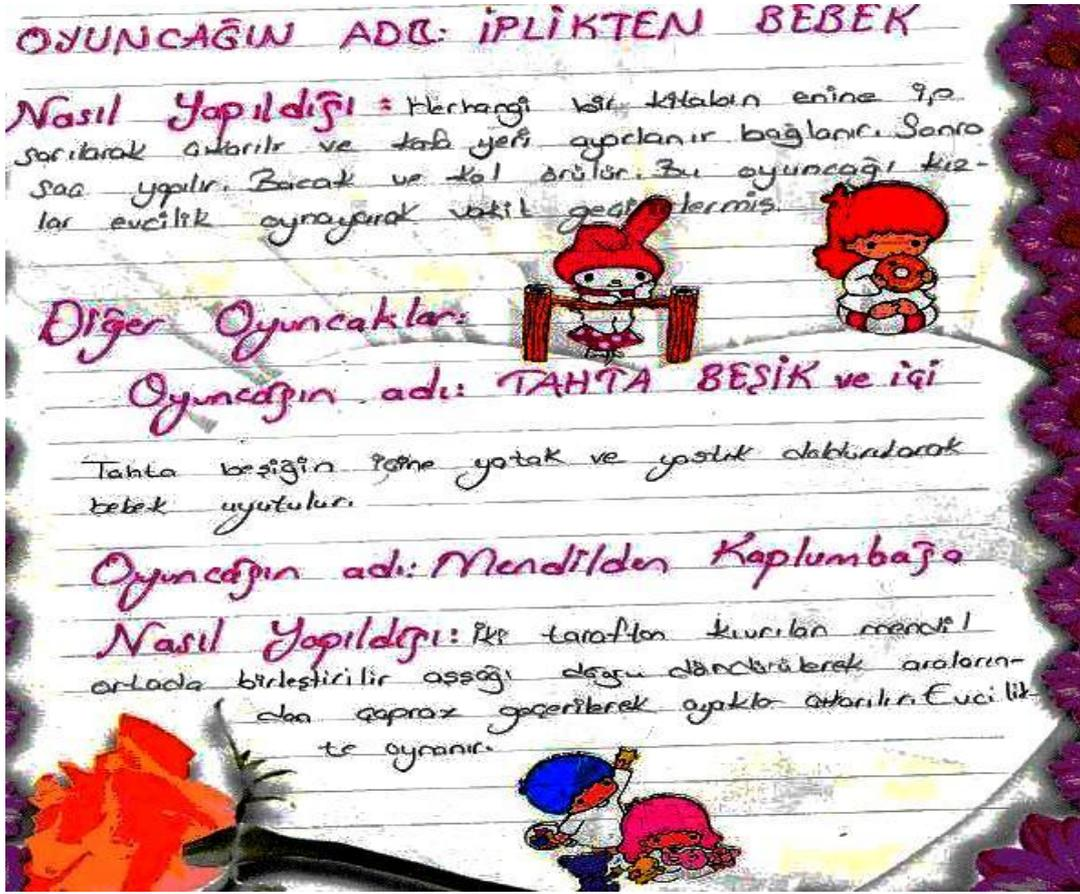 OYUNCAĞIN ADI: İPLİKTEN BEBEK
Nasıl Yapıldığı : Herhangi bir kitabın enine ip
sarılarak çıkarılır ve kafa yeri ayarlanır bağlanır. Sonra
saç yapılır. Bacak ve kol örülür. Bu oyuncağı kız-
lar evcilik oynayarak vakit geçirirlermiş.
Diğer Oyuncaklar:
Oyuncağın adı: TAHTA BEŞİK ve içi
Tahta beşiğin içine yatak ve yastık doldurularak
bebek uyutulur.
Oyuncağın adı: Mendilden Kaplumbağa
Nasıl Yapıldığı: İki taraftan kıvrılan mendil
ortada birleştirilir aşşağı doğru döndürülerek araların-
dan çapraz geçerilerek ayaklar çıkarılır. Evcilik-
te oynanır.